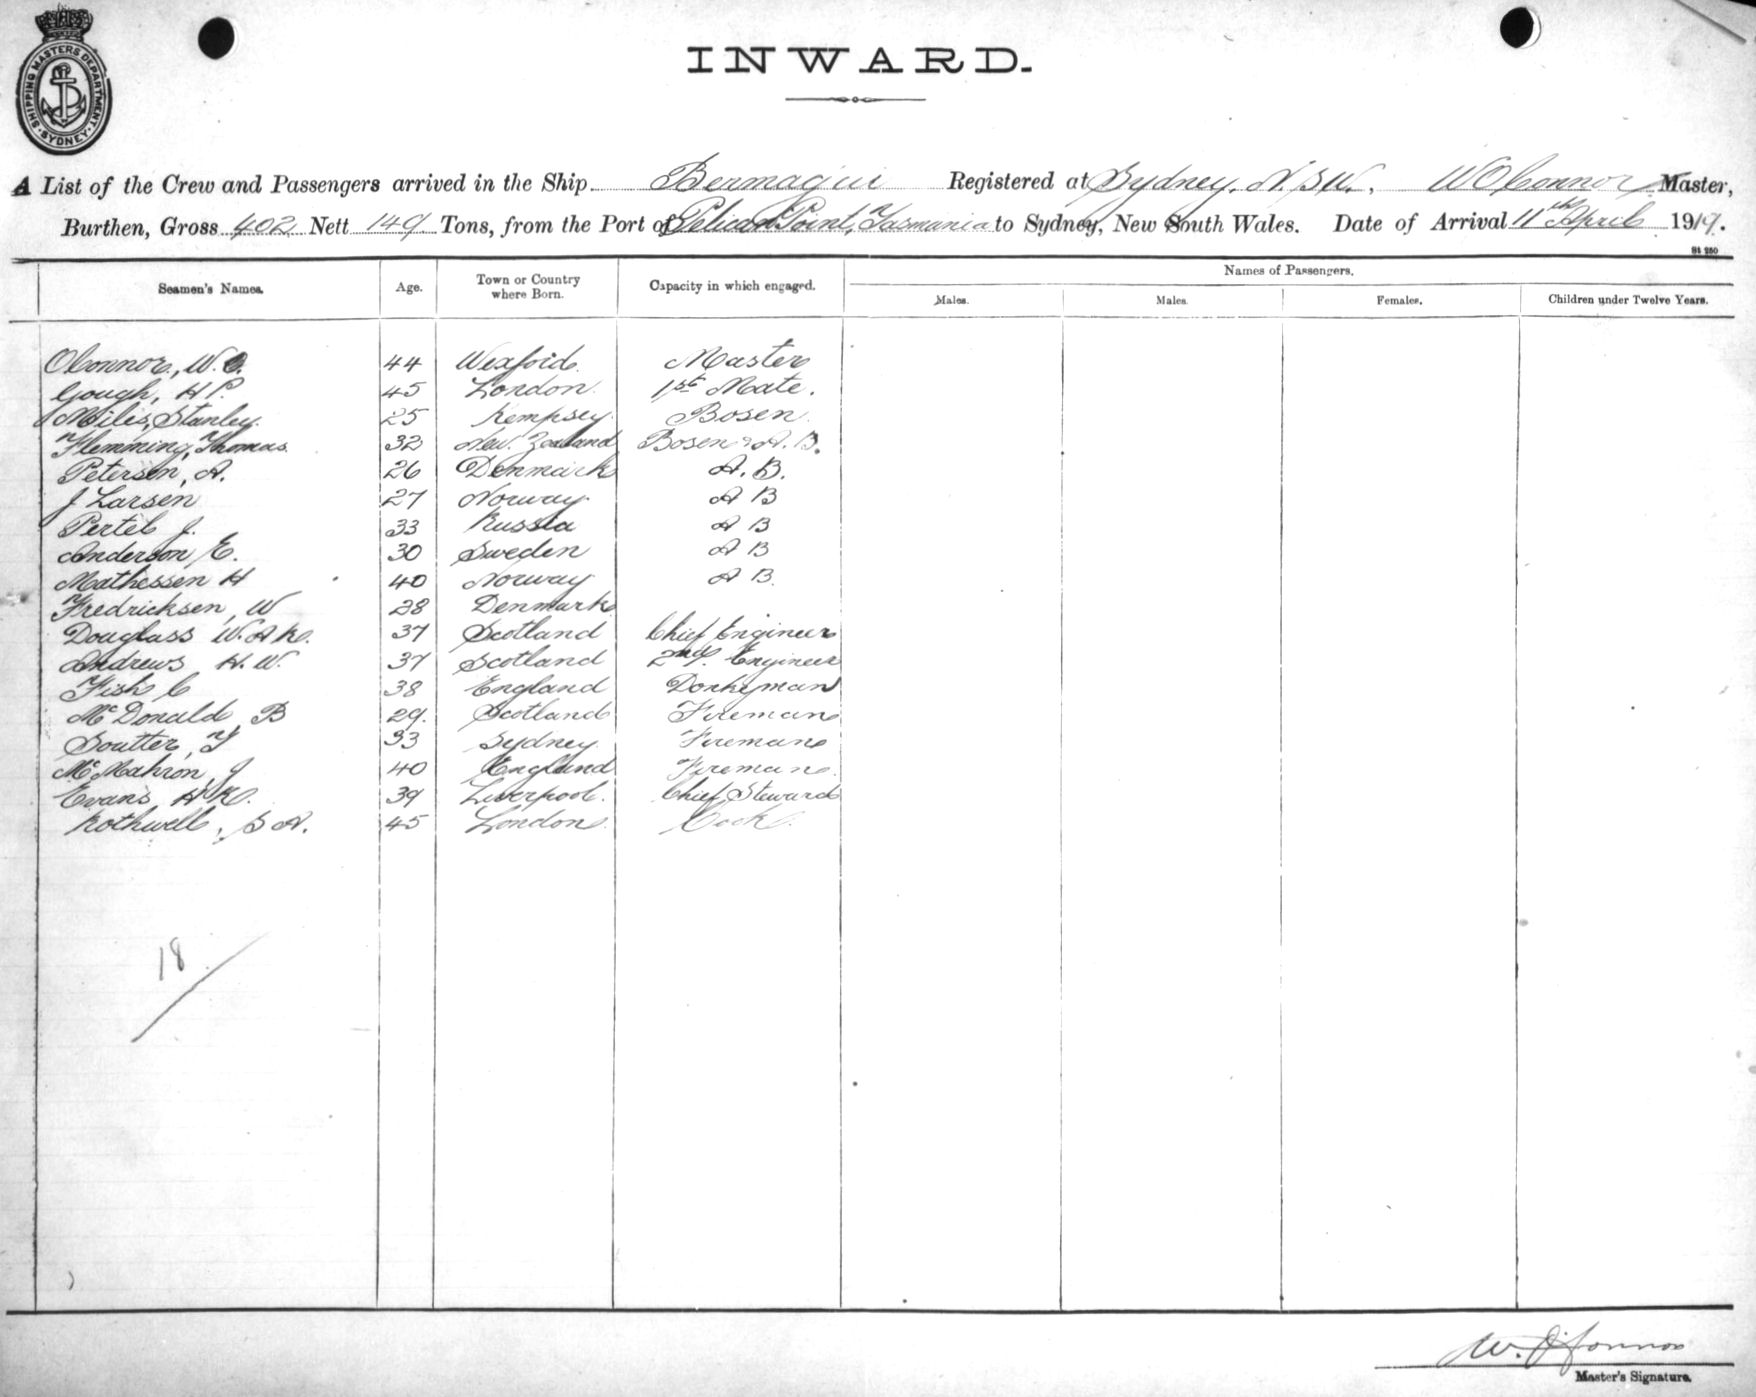 SHIPPING MASTERS DEPARTMENT
SYDNEY
INWARD.
A List of the Crew and Passengers arrived in the Ship Bermagui Registered at Sydney. N.S.W., W O'Connor Master,
Burthen, Gross 402 Nett 149 Tons, from the Port of Pelican Point, Tasmania to Sydney, New South Wales. Date of Arrival 11th April 1919.
Seamen's Names. Age. Town or Country where Born. Capacity in which engaged. Names of Passengers.
Males. Males. Females. Children under Twelve Years.
OConnor, W. 44 Wexford. Master
Gough, H P. 45 London. 1st Mate.
Miles, Stanley. 25 Kempsey. Bosen.
Flemming, Thomas 32 New Zealand Bosen & A. B.
Petersen, A. 26 Denmark A. B.
J Larsen 27 Norway A B
Pertel J. 33 Russia A B
Anderson E. 30 Sweden A B
Mathessen H 40 Norway A B.
Fredricksen, W 28 Denmark
Douglass W. A K. 37 Scotland Chief Engineer
Andrews H. W. 37 Scotland 2nd. Engineer
Fish C 38 England Donkeyman
McDonald, B 29. Scotland Fireman
Soutter, T 33 Sydney. Fireman
McMahron, J 40 England Fireman.
Evans, H K. 39 Liverpool. Chief Steward
Rothwell, S A. 45 London. Cook.
18
W. O'Connor
Master's Signature.